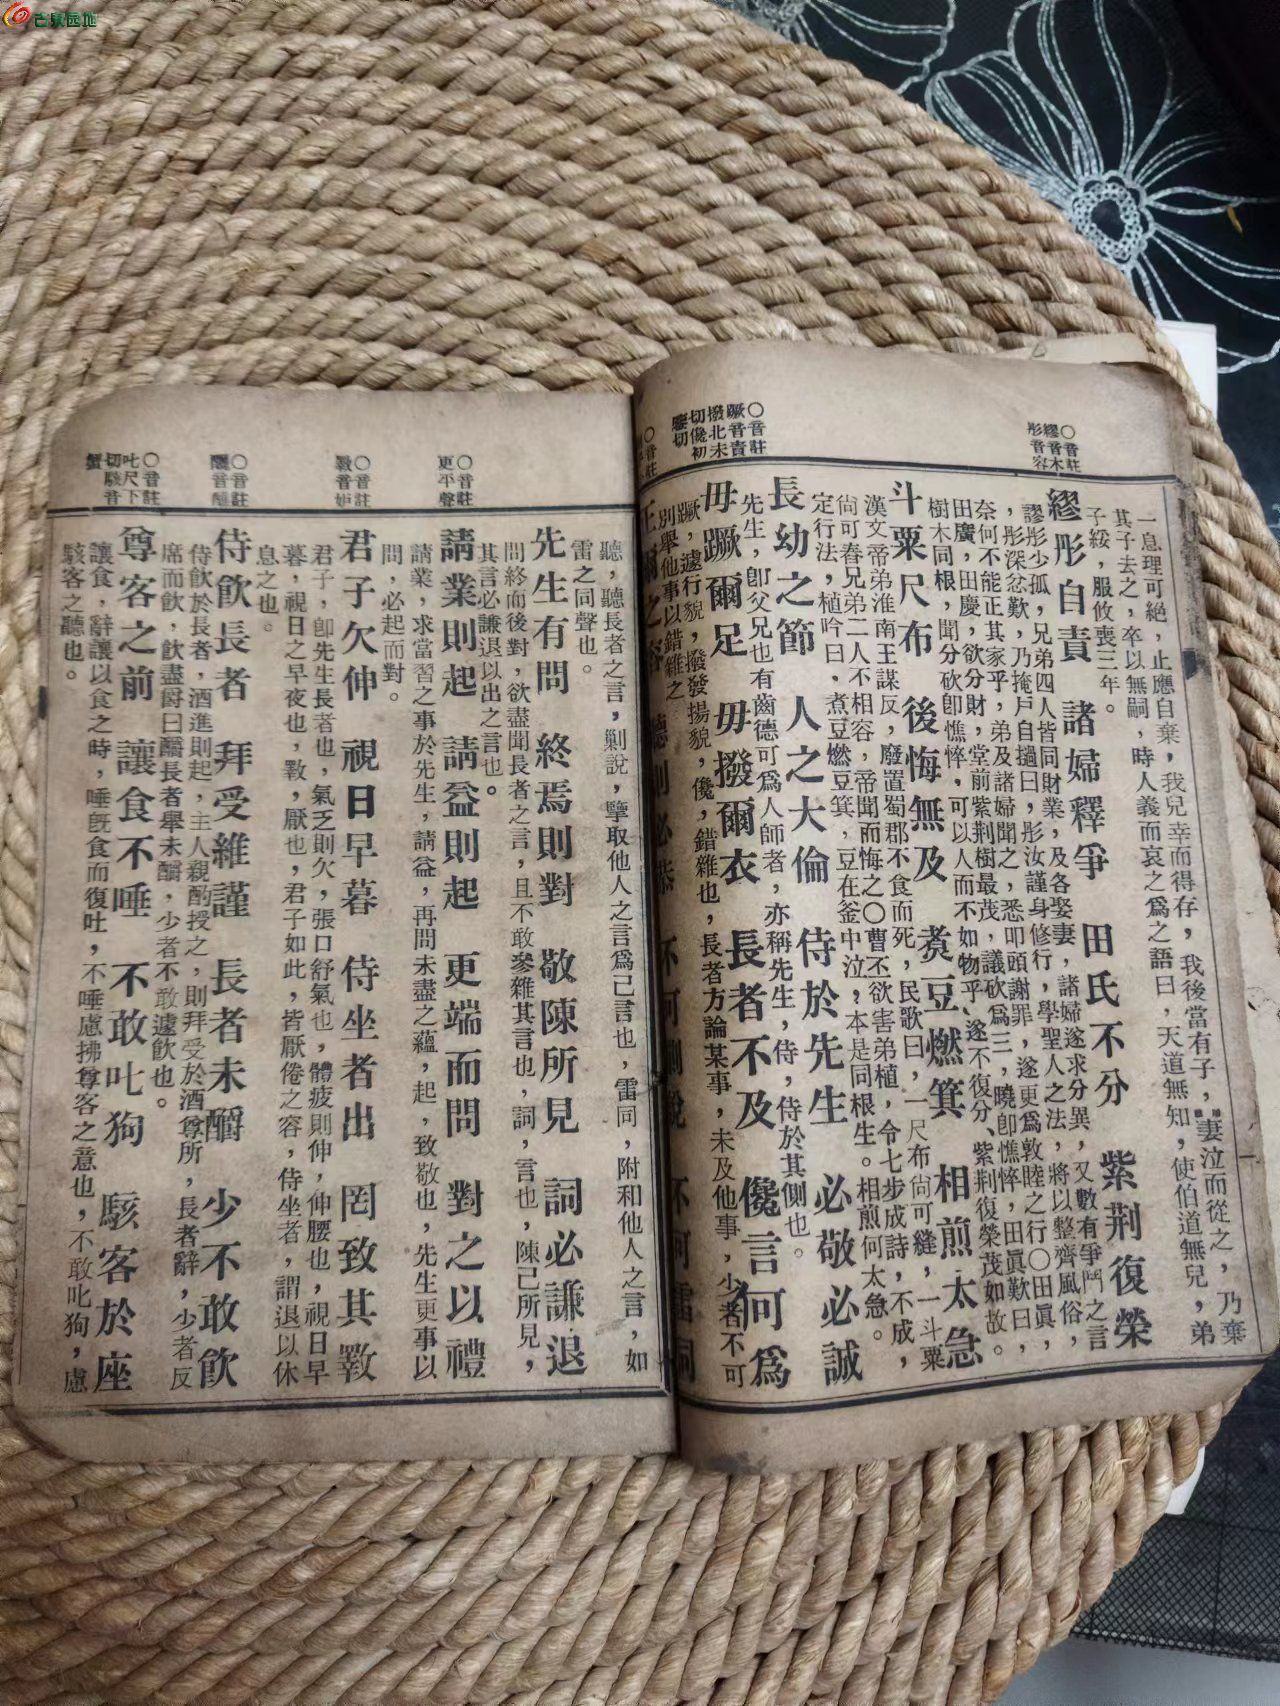 古泉园地
○音註
繆音木
彤音容
○音註
蹶音責
撥北末
切儳初
鑒切
一息理可絕，止應自棄，我兒幸而得存，我後當有子，妻泣而從之，乃棄
其子去之，卒以無嗣，時人義而哀之爲之語曰，天道無知，使伯道無兒，弟
子綏，服攸喪三年。
繆彤自責 諸婦釋爭 田氏不分 紫荆復榮
謬彤少孤，兄弟四人皆同財業，及各娶妻，諸婦遂求分異，又數有爭鬥之言
，彤深忿歎，乃掩戶自撾曰，彤汝謹身修行，學聖人之法，將以整齊風俗，
奈何不能正其家乎，弟及諸婦聞之，悉叩頭謝罪，遂更爲敦睦之行○田眞，
田廣，田慶，欲分財，堂前紫荆樹最茂，議砍爲三，曉卽憔悴，田眞歎曰，
樹木同根，聞分砍卽憔悴，可以人而不如物乎、遂不復分、紫荆復榮茂如故。
斗粟尺布 後悔無及 煑豆燃箕 相煎太急
漢文帝弟淮南王謀反，廢置蜀郡不食而死，民歌曰，一尺布尙可縫，一斗粟
尙可舂兄弟二人不相容，帝聞而悔之○曹丕欲害弟植，令七步成詩，不成，
定行法，植吟曰，煮豆燃豆箕，豆在釜中泣，本是同根生。相煎何太急。
長幼之節 人之大倫 侍於先生 必敬必誠
先生，卽父兄也有齒德可爲人師者，亦稱先生，侍，侍於其側也。
毋蹶爾足 毋撥爾衣 長者不及 儳言何爲
蹶，遽行貌，撥發揚貌，儳，錯雜也，長者方論某事，未及他事，少者不可
別舉他事以錯雜之
聽，聽長者之言，剿說，擥取他人之言爲己言也，雷同，附和他人之言，如
雷之同聲也。
先生有問 終焉則對 敬陳所見 詞必謙退
問終而後對，欲盡聞長者之言，且不敢參雜其言也，詞，言也，陳己所見，
其言必謙退以出之言也。
○音註
更平聲
請業則起 請益則起 更端而問 對之以禮
請業，求當習之事於先生，請益，再問未盡之蘊，起，致敬也，先生更事以
問，必起而對。
○音註
斁音妒
君子欠伸 視日早暮 侍坐者出 罔致其斁
君子，卽先生長者也，氣乏則欠，張口舒氣也，體疲則伸，伸腰也，視日早
暮，視日之早夜也，斁，厭也，君子如此，皆厭倦之容，侍坐者，謂退以休
息之也。
○音註
釂音醮
侍飲長者 拜受維謹 長者未釂 少不敢飲
侍飲於長者，酒進則起，主人親酌授之，則拜受於酒尊所，長者辭，少者反
席而飲，飲盡爵曰釂長者舉未釂，少者不敢遽飲也。
○音註
叱尺下
切駭音
蟹
尊客之前 讓食不唾 不敢叱狗 駭客於座
讓食，辭讓以食之時，唾旣食而復吐，不唾慮拂尊客之意也，不敢叱狗，慮
駭客之聽也。